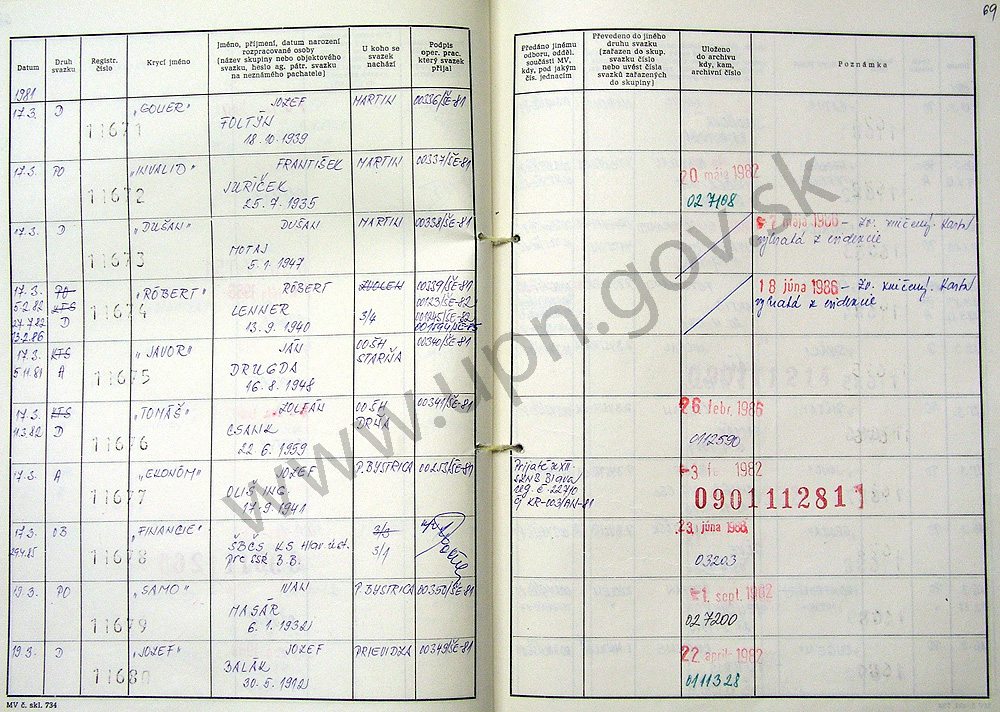 69
Datum
Druh svazku
Registr. číslo
Krycí jméno
Jméno, příjmení, datum narození rozpracované osoby (název skupiny nebo objektového svazku, heslo ag. pátr. svazku na neznámého pachatele)
U koho se svazek nachází
Podpis oper. prac. který svazek přijal
Předáno jinému odboru, odděl. součásti MV, kdy, pod jakým čís. jednacím
Převedeno do jiného druhu svazku (zařazen do skup. svazku číslo nebo uvést čísla svazků zařazených do skupiny)
Uloženo do archivu kdy, kam, archivní číslo
Poznámka
1981
17.3. D 11671 „GOLIER" JOZEF MARTIN 00336/ŠE-81
FOLTÝN
18.10.1939
17.3. PO 11672 „INVALID" FRANTIŠEK MARTIN 00337/ŠE-81 20 mája 1982
JURÍČEK
25.7.1935 027108
17.3. D 11673 „DUŠAN" DUŠAN MARTIN 00338/ŠE-81 mája 1986 – Zv. zničený. Karta
MOTAJ vyňatá z indexcie
5.1.1947
17.3. PO 11674 „RÓBERT" RÓBERT ZVOLEN 00339/ŠE-81 18 júna 1986 – Zv. zničený. Karta
5.2.82 KTS LENNER 00123/ŠE-82 vyňatá z indexcie
27.7.82 D 13.9.1940 3/4 001245/ŠE-82
13.2.86
17.3. KTS 11675 „JAVOR" JÁN OOŠH 00340/ŠE-81
5.11.81 A DRUGDA STARŇA
16.8.1948
17.3. KTS 11676 „TOMÁŠ" ZOLTÁN OOŠH 00341/ŠE-81 26 febr. 1986
11.3.82 D CSANK DRŇA
22.6.1959 0112590
17.3. A 11677 „EKONÓM" JOZEF P. BYSTRICA 00253/ŠE-81 Prijaté z XII. 3 fe 1982
OLIŠING ŠZNB Blava
17.9.1941 reg. č. 22710 0901112811
čj KR-003/AN-81
17.3. OB 11678 „FINANCIE" 3/3 23. júna 1988
29.4.85 ŠBČS KS Hlav. úst. 3/1
pre SSR B.B. 03203
19.3. PO 11679 „SAMO" IVAN P. BYSTRICA 00350/ŠE-81 1. sept. 1982
MASÁR
6.1.1932 027200
19.3. D 11680 „JOZEF" JOZEF PRIEVIDZA 00349/ŠE-81 22 apríla 1982
BALÁK
30.5.1912 0111328
MV č. skl. 734
www.upn.gov.sk